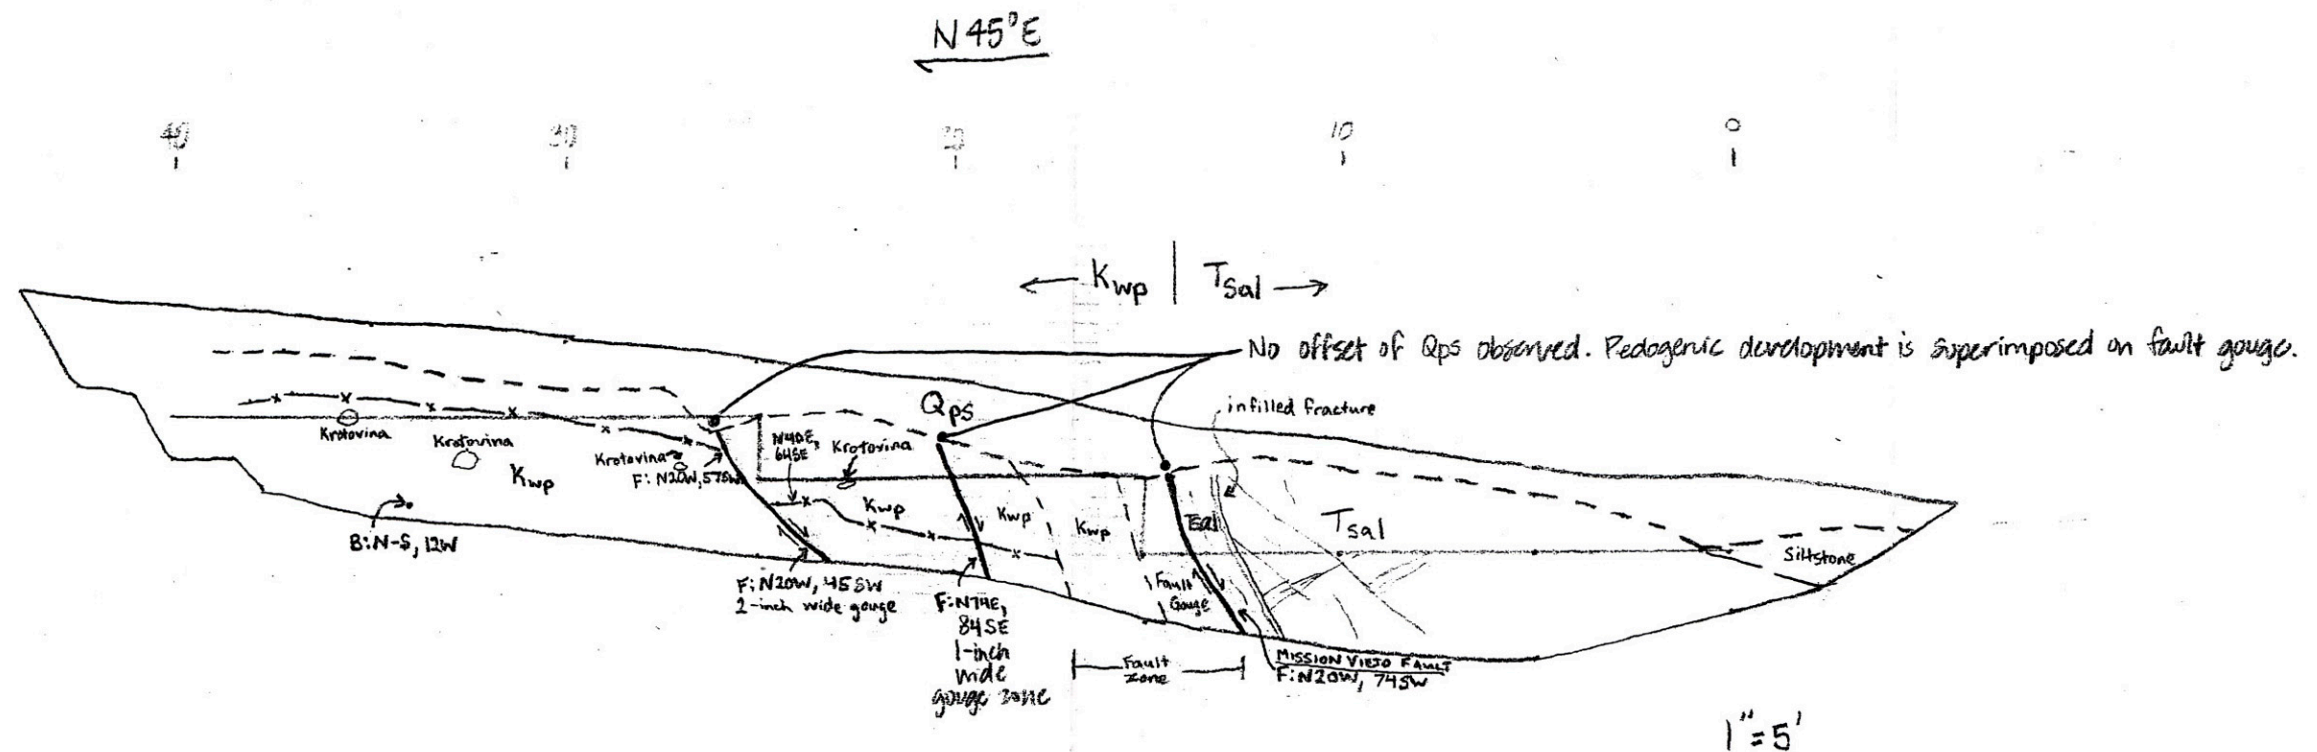 N45°E
40 30 20 10 0
Kwp | Tsal
No offset of Qps observed. Pedogenic development is superimposed on fault gouge.
Qps
infilled fracture
Krotovina
Krotovina
Krotovina
F: N20W, 57SW
N40E,
64SE
Krotovina
Kwp
Kwp
Kwp
Kwp
Tsal
Tsal
B: N-S, 12W
Siltstone
Fault
Gouge
F: N20W, 45SW
2-inch wide gouge
F: N74E,
84SE
1-inch
wide
gouge zone
Fault
zone
MISSION VIEJO FAULT
F: N20W, 74SW
1"=5'